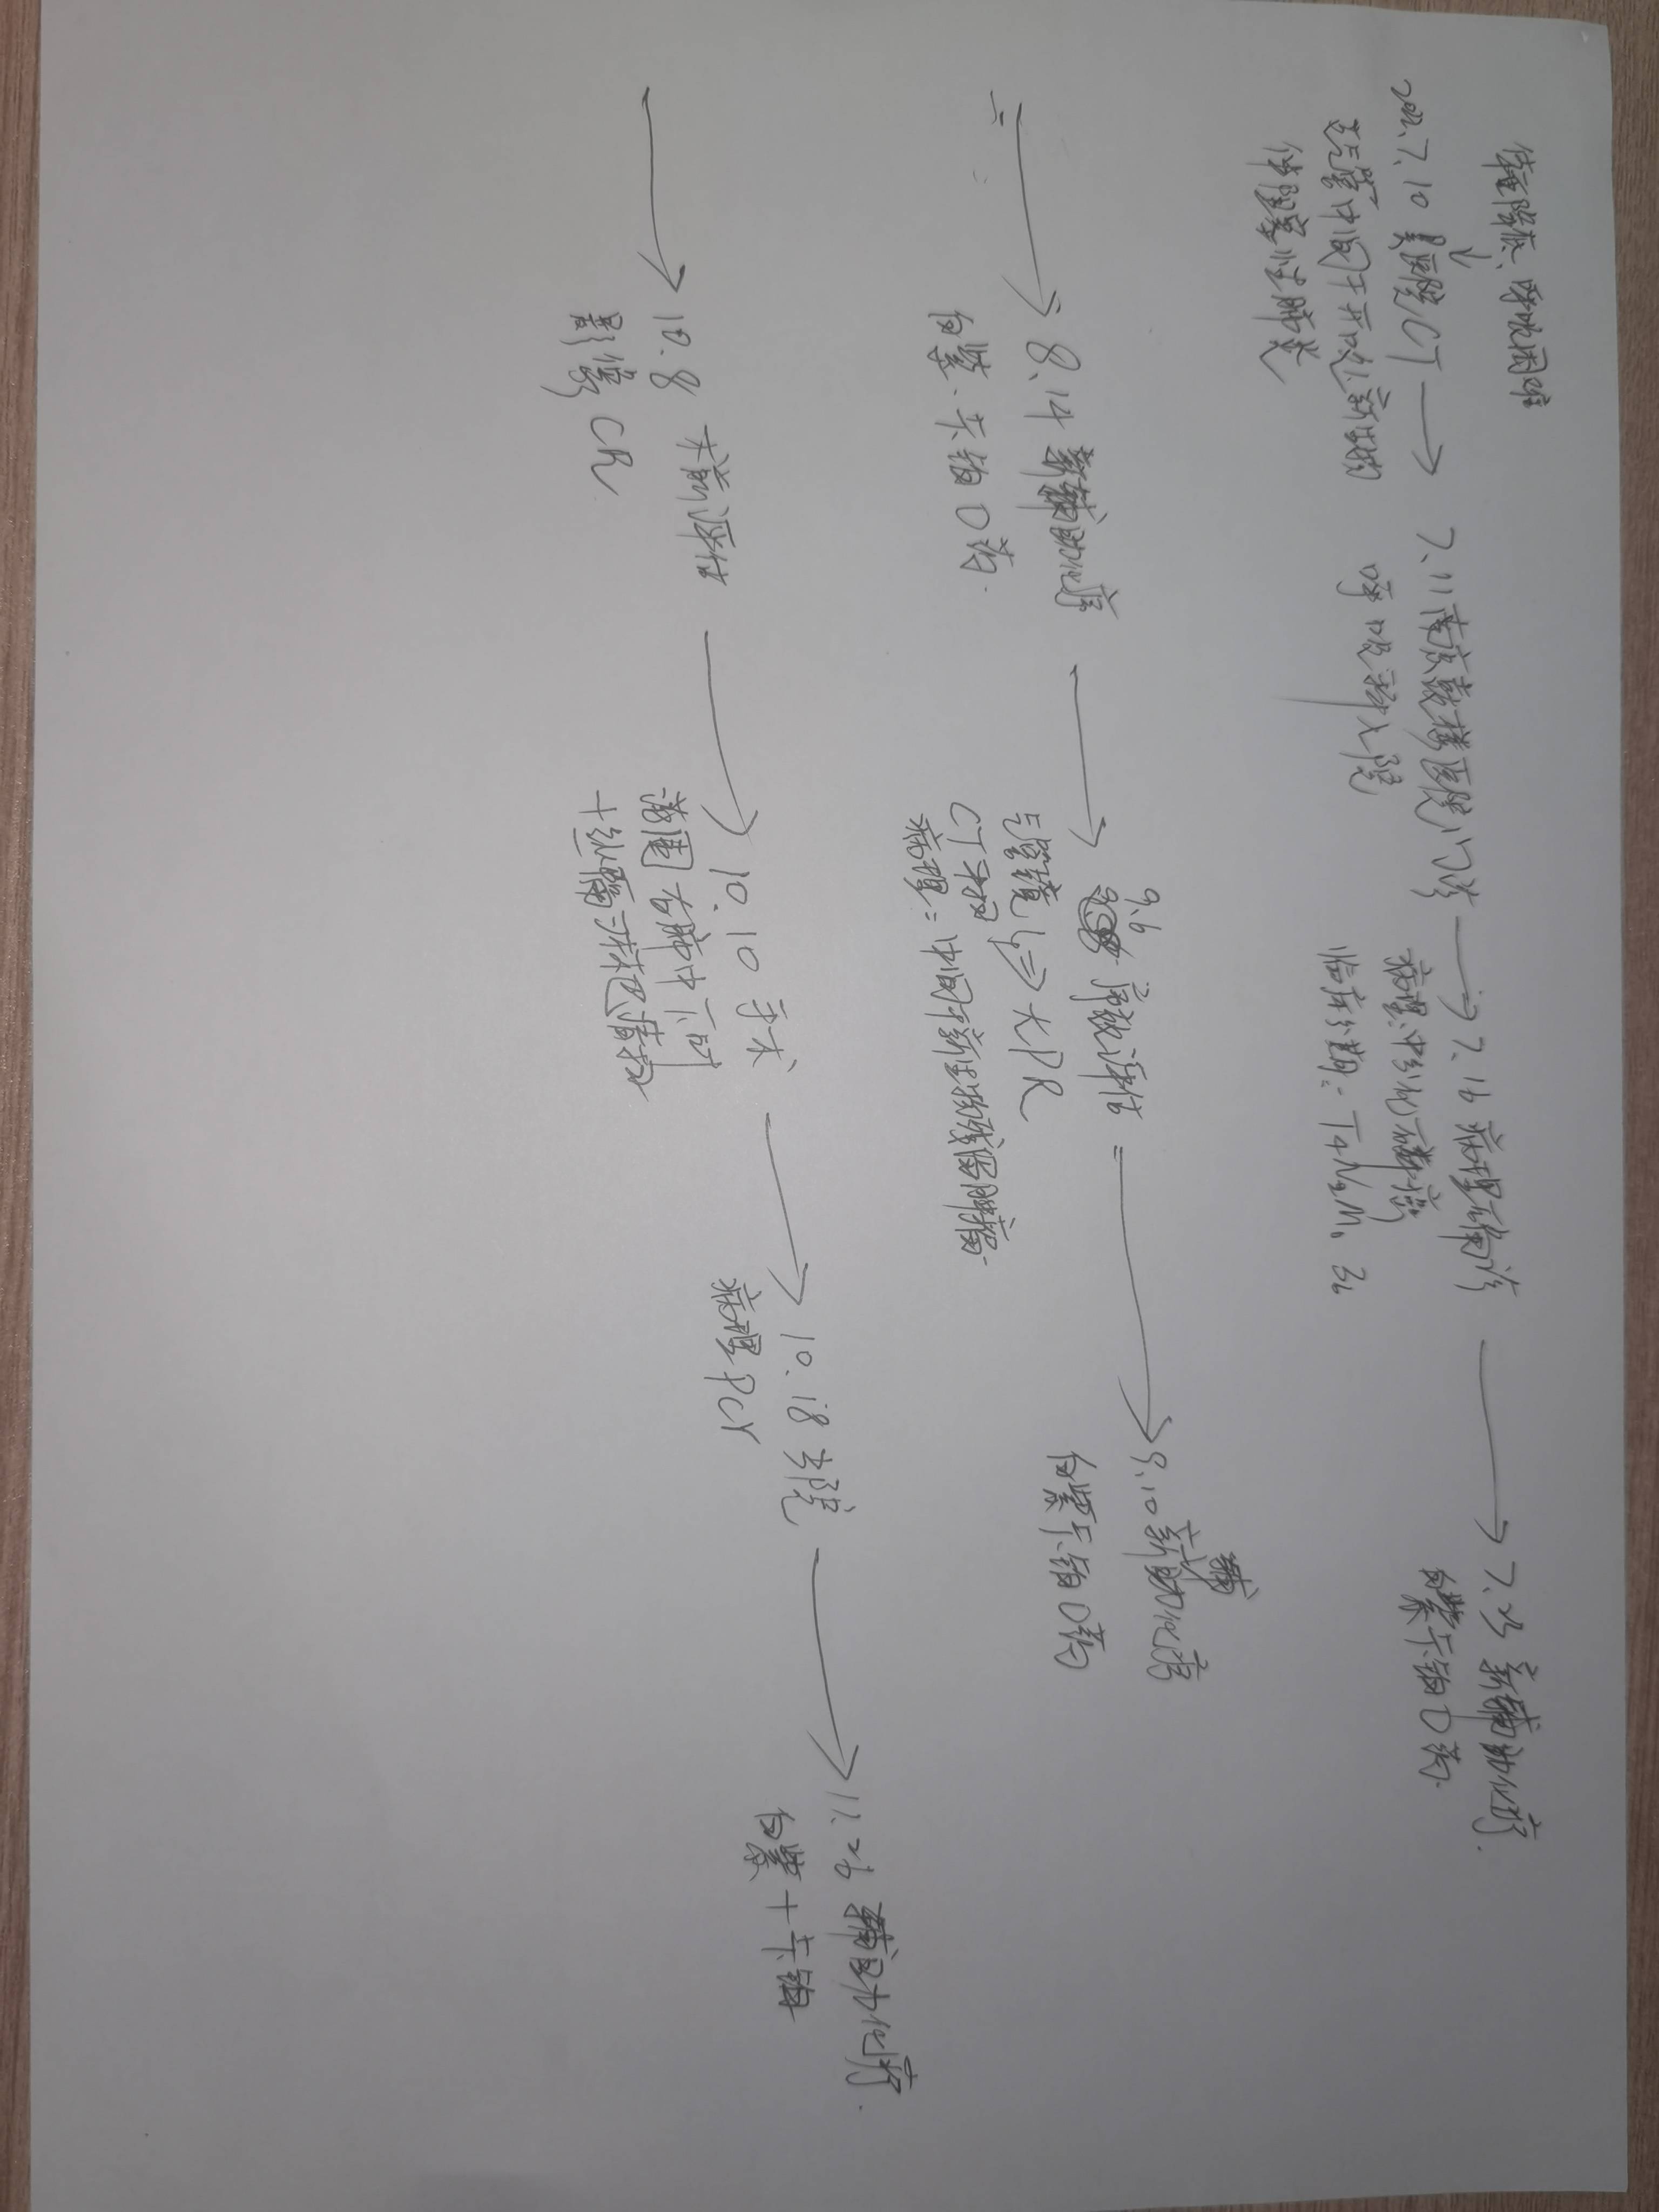 体重降低、呼吸困难
2022.7.10 县医院CT → 7.11南京鼓楼医院门诊 → 7.16 病理确诊 → 7.23 新辅助化疗
支气管中间干开口处新生物
伴阻塞性肺炎
呼吸科入院
病理:中分化鳞癌
临床分期:T4N2M0 3b
白紫 卡铂 D药
→ 8.14 新辅助化疗 → 9.6 疗效评估 → 9.10 新辅助化疗
白紫 卡铂 D药
气管镜 → 大PR
CT
病理:中间干新生物残留肿瘤
白紫 卡铂 D药
→ 10.8 术前评估 → 10.10 手术 → 10.18 出院 → 11.26 辅助化疗
影像 CR
范围 右肺中下叶
+ 纵隔淋巴清扫
病理PCR
白紫 + 卡铂